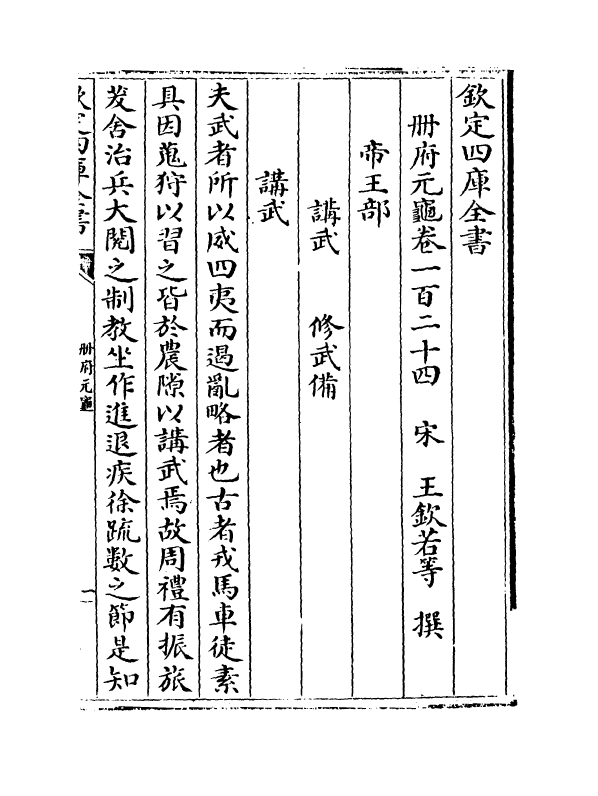 欽定四庫全書
冊府元龜卷一百二十四　宋　王欽若等　撰
帝王部
講武　修武備
講武
夫武者所以威四夷而遏亂略者也古者戎馬車徒素
具因蒐狩以習之皆於農隙以講武焉故周禮有振旅
茇舍治兵大閱之制教坐作進退疾徐疏數之節是知
欽定四庫全書
冊府元龜
一